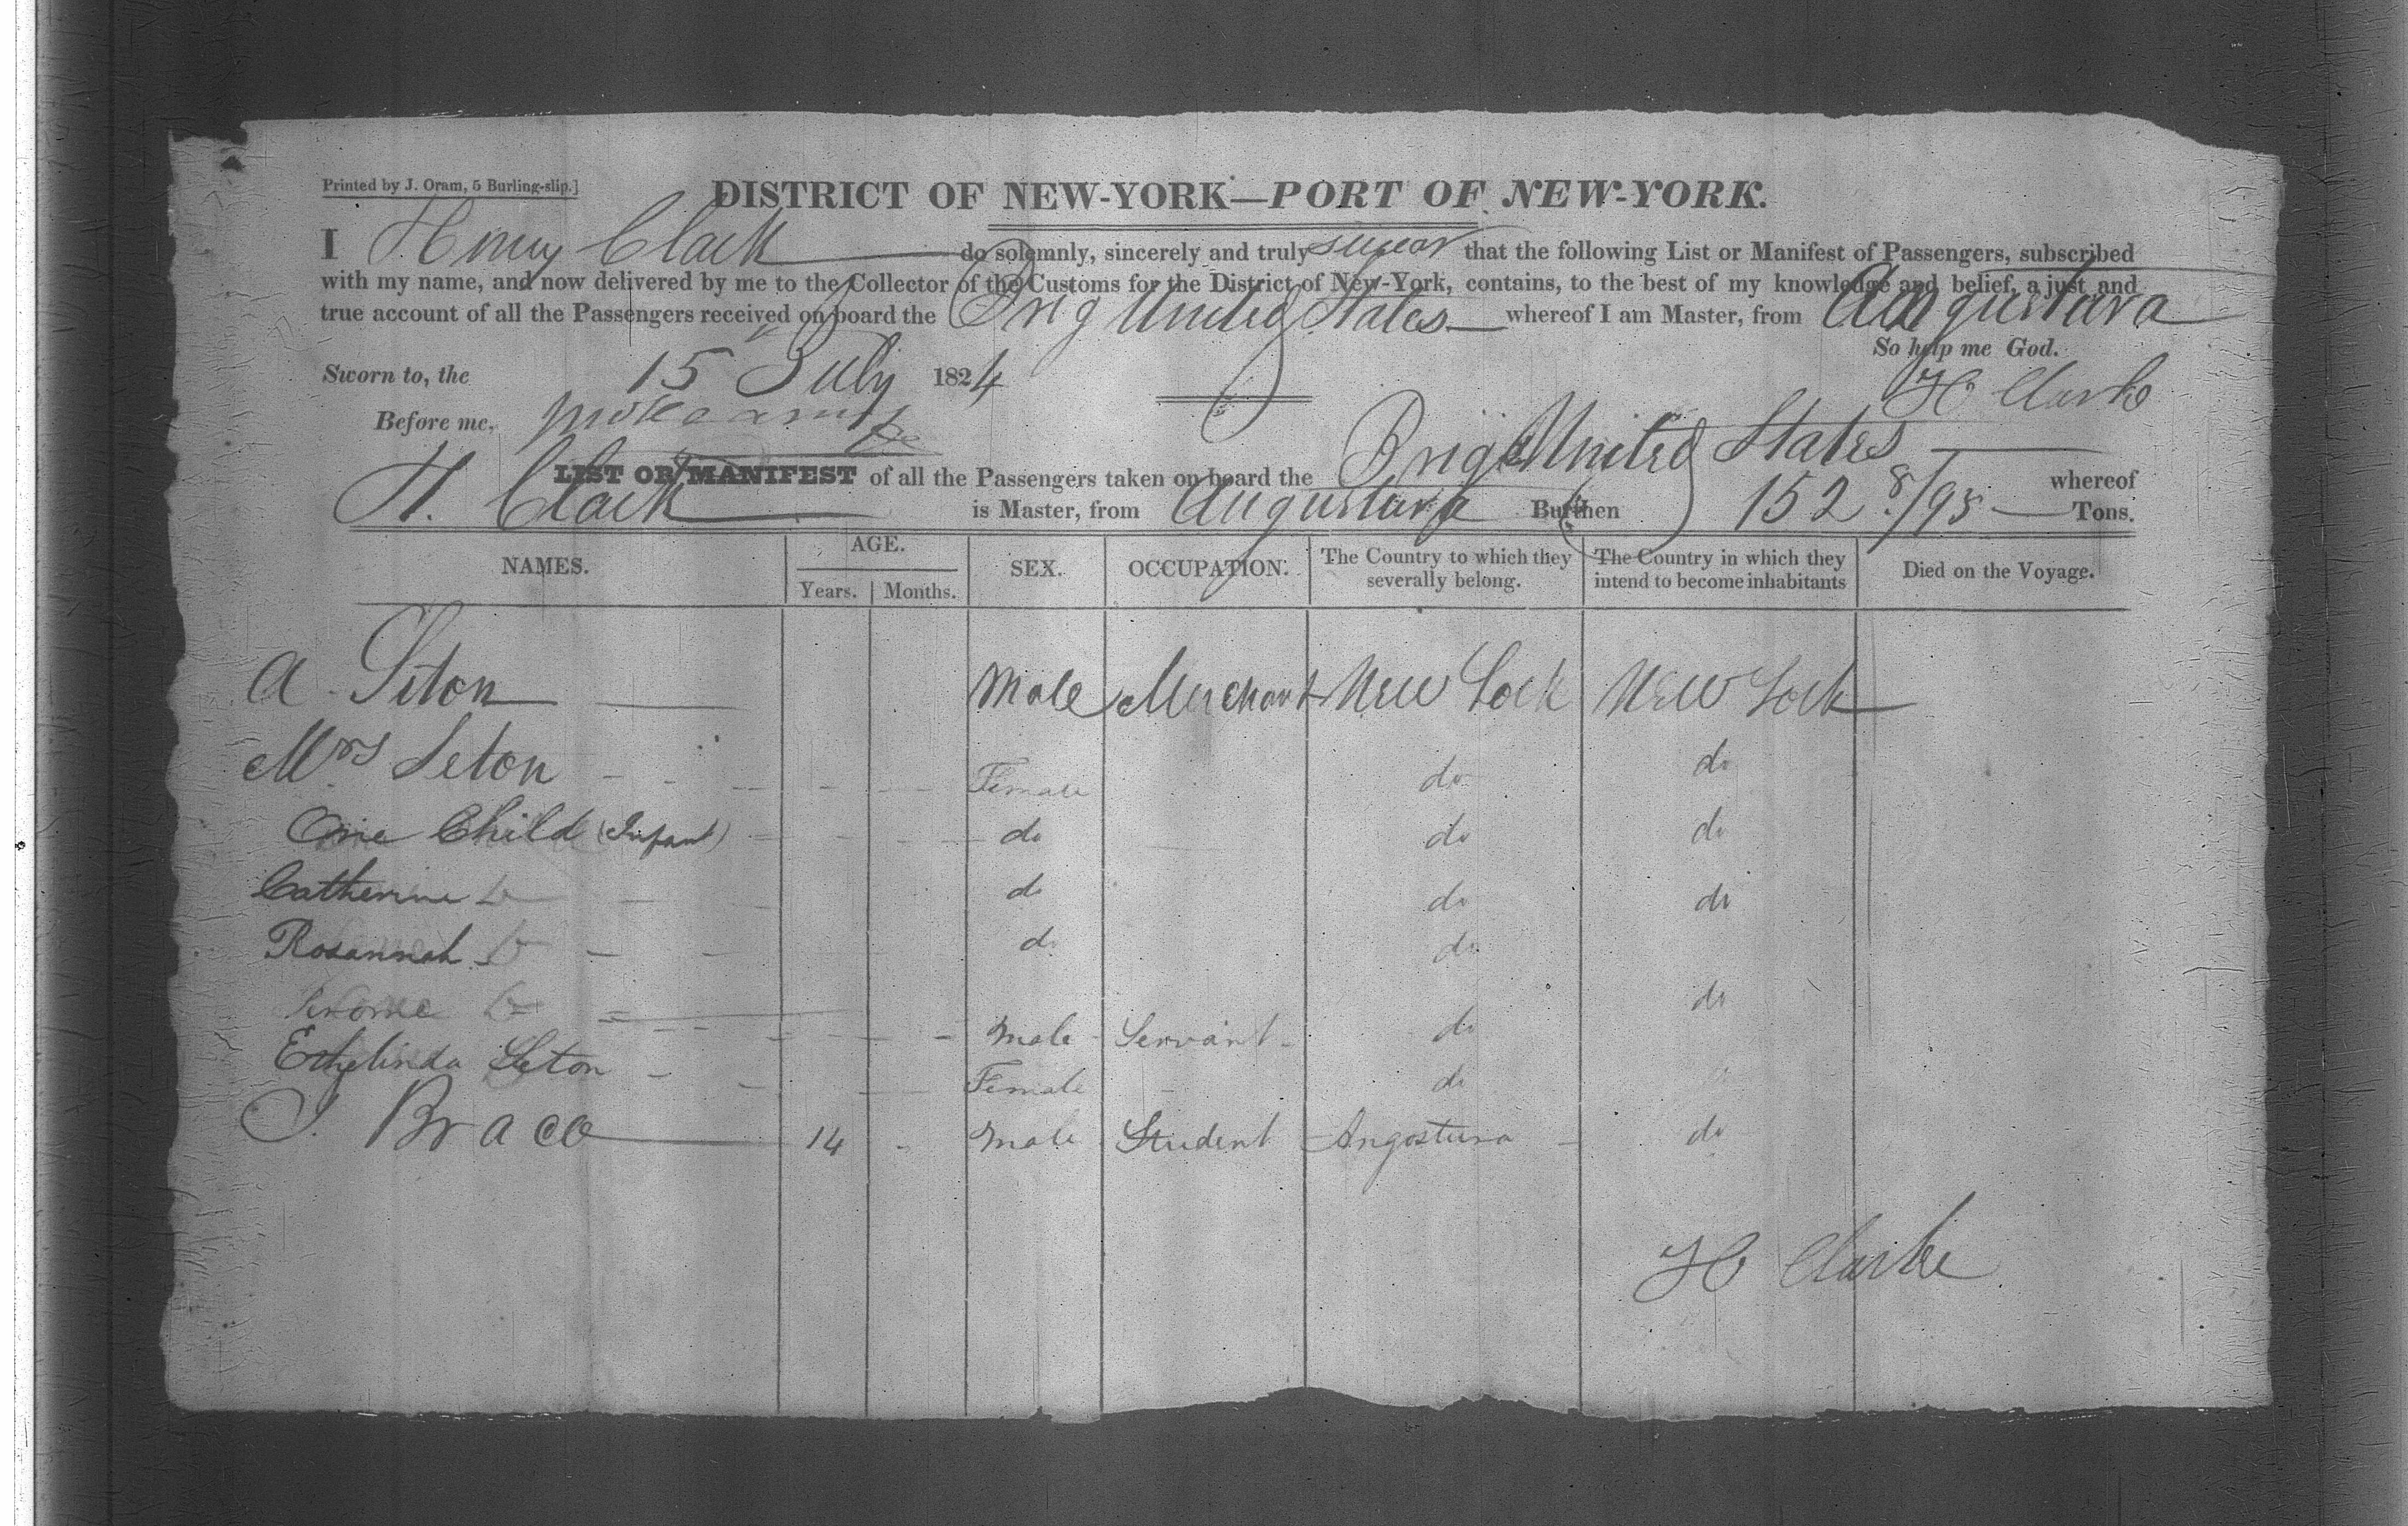 Printed by J. Oram, 5 Burling-slip.]
DISTRICT OF NEW-YORK—PORT OF NEW-YORK.
I Henry Clark do solemnly, sincerely and truly swear that the following List or Manifest of Passengers, subscribed
with my name, and now delivered by me to the Collector of the Customs for the District of New-York, contains, to the best of my knowledge and belief, a just and
true account of all the Passengers received on board the Brig United States whereof I am Master, from Angustura
So help me God.
Sworn to, the 15 July 1824
H Clarke
Before me,
LIST OR MANIFEST of all the Passengers taken on board the Brig United States whereof
H. Clark is Master, from Augustura Burthen 152 8/95 Tons.
NAMES. AGE. Years. Months. SEX. OCCUPATION. The Country to which they severally belong. The Country in which they intend to become inhabitants Died on the Voyage.
A Seton Male Merchant New York New York
Mrs Seton Female do do
One Child (Infant) do do do
Catherine do do do
Rosannah do do
Jerome do
Male Servant do
Ethelinda Seton Female do
J. Braco 14 Male Student Angostura do
H Clarke